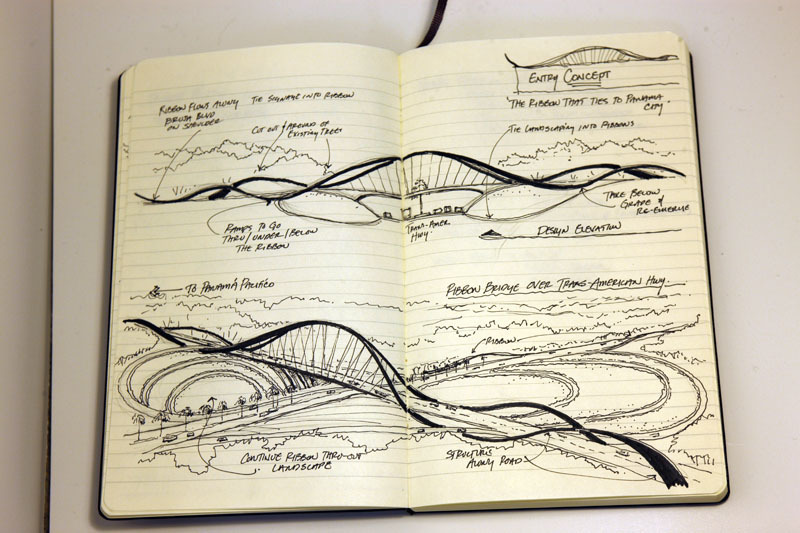 ENTRY CONCEPT
"THE RIBBON THAT TIES TO PANAMA
CITY"
RIBBON FLOWS ALONG
BRUJA BLVD
ON SHOULDER
TIE SIGNAGE INTO RIBBON
CUT OUT & AROUND OF
EXISTING TREES
TIE LANDSCAPING INTO RIBBONS
RAMPS TO GO
THRU/UNDER/BELOW
THE RIBBON
TRANS-AMER
HWY.
TAKE BELOW
GRADE &
RE-EMERGE
DESIGN ELEVATION
TO PANAMÁ PACIFICO
RIBBON BRIDGE OVER TRANS-AMERICAN HWY.
RIBBON
CONTINUE RIBBON THRU-OUT
LANDSCAPE
STRUCTURE
ALONG ROAD